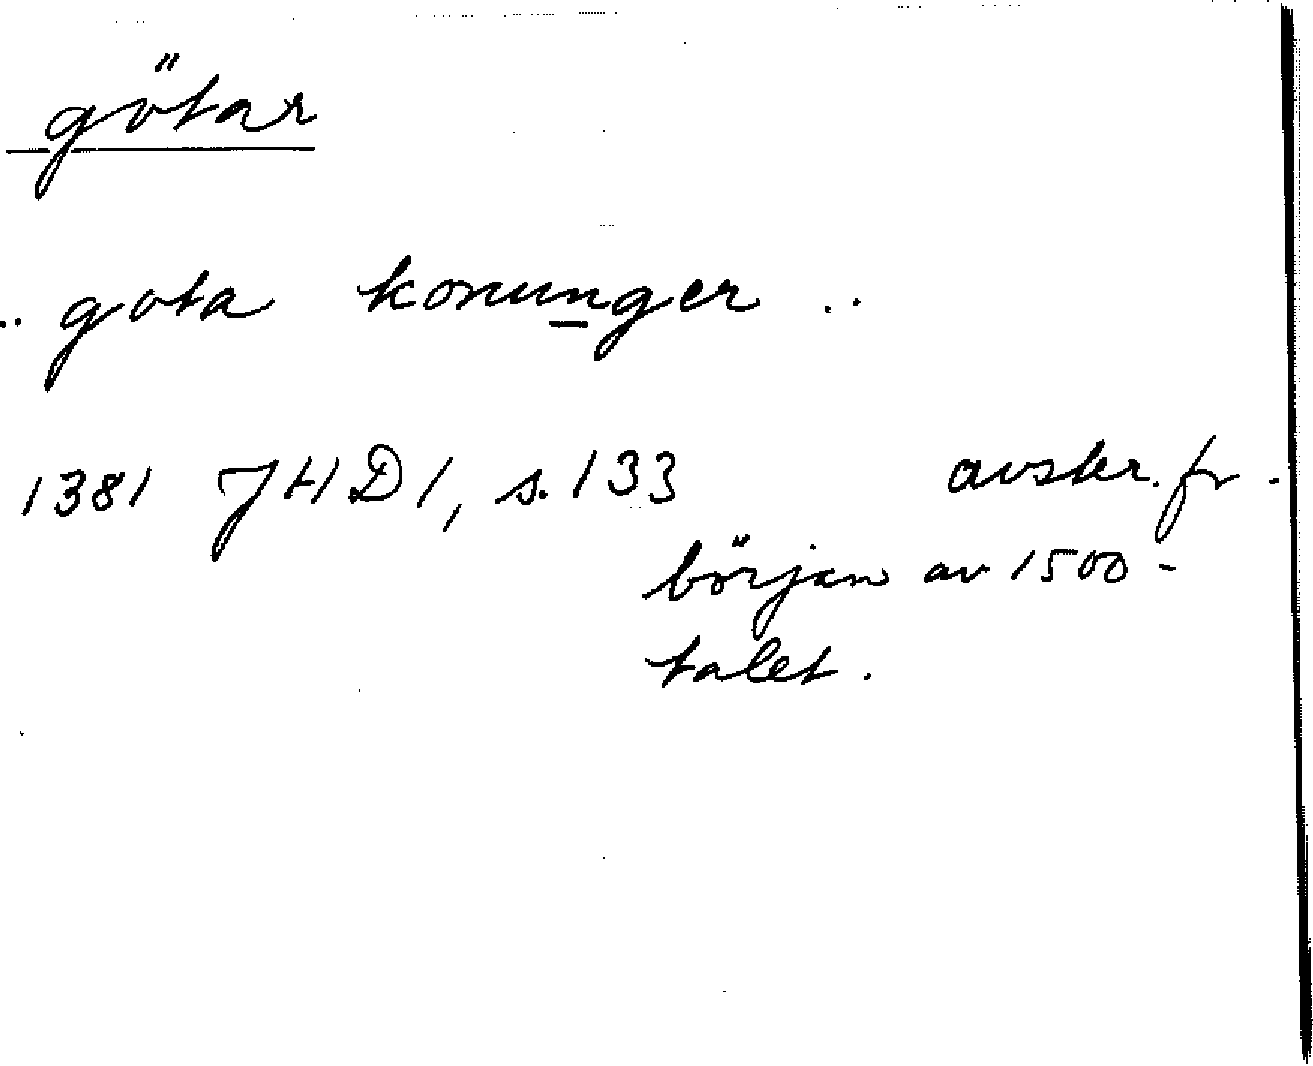 götar
.. gota konunger ..
1381 JHD 1, s. 133 avskr. fr.
början av 1500-
talet.